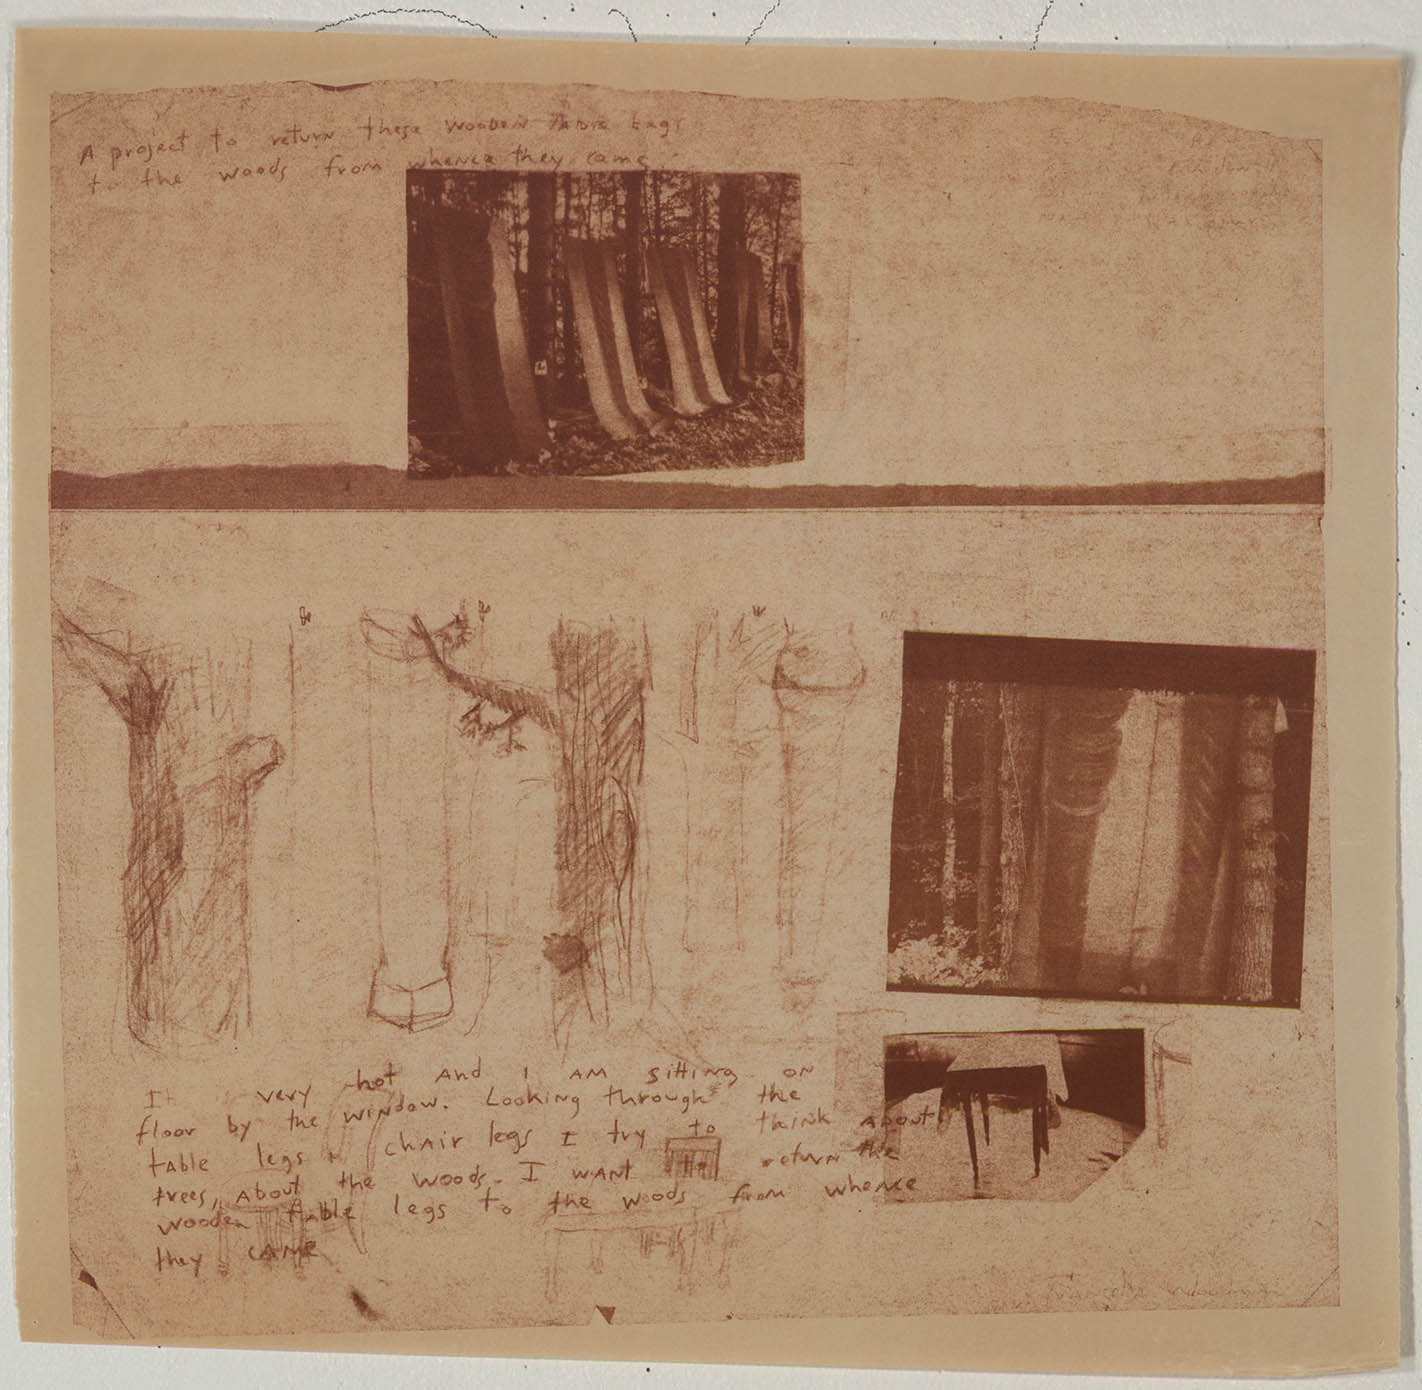 A project to return these wooden table legs
to the woods from whence they came.
It very hot and I am sitting on
floor by the window. Looking through the
table legs chair legs I try to think about
trees, about the woods. I want to return the
wooden table legs to the woods from whence
they came
Francesca Woodman